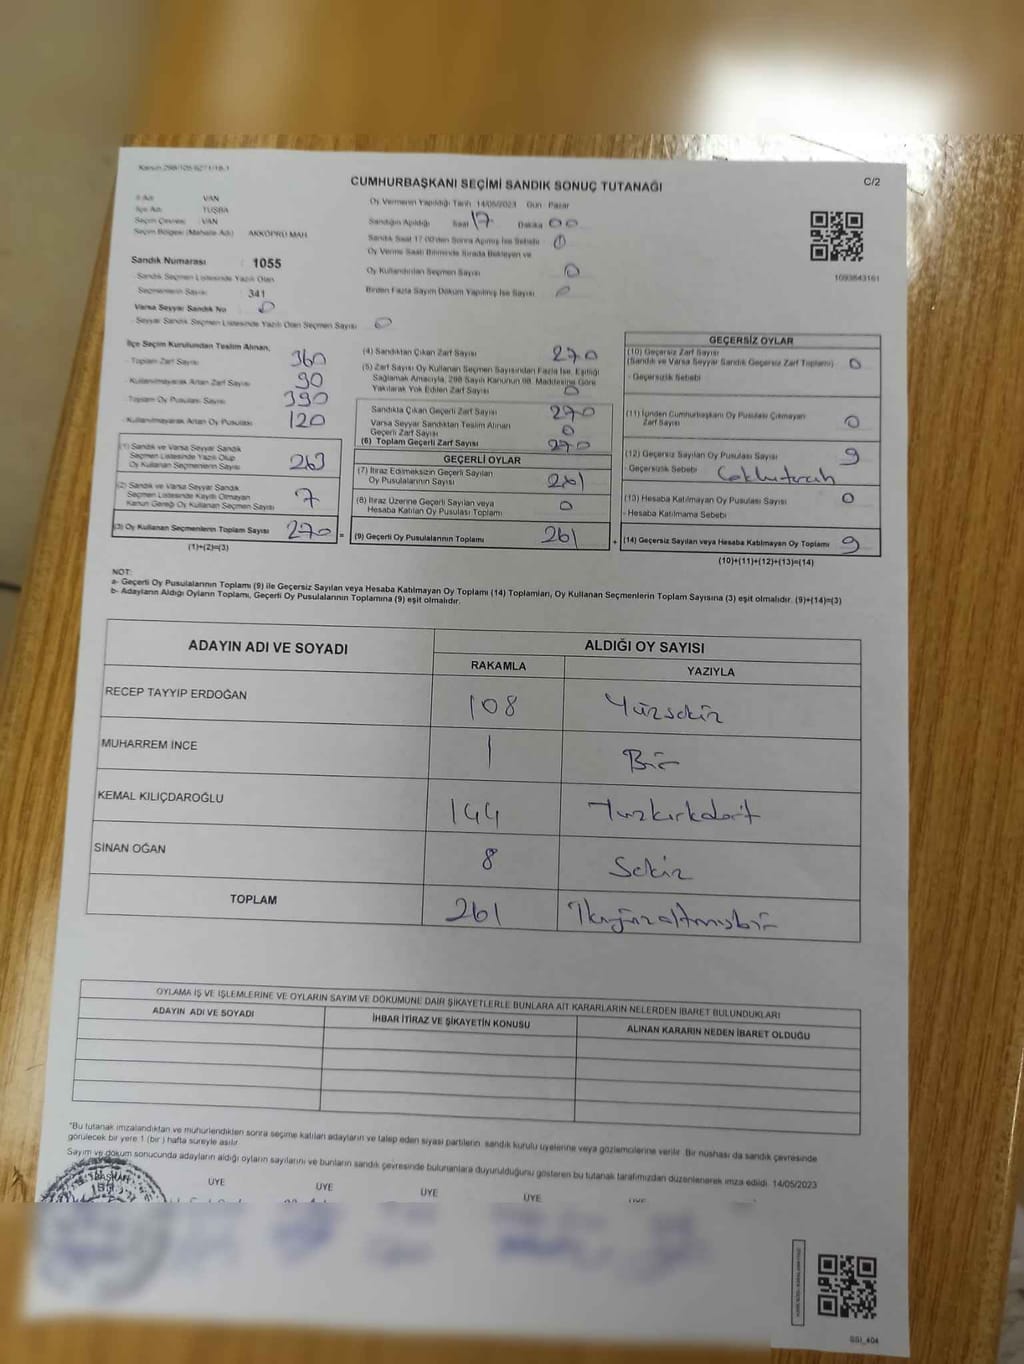 Kanun:298/105
CUMHURBAŞKANI SEÇİMİ SANDIK SONUÇ TUTANAĞI
C/2
İl Adı VAN
İlçe Adı TUŞBA
Seçim Çevresi VAN
Seçim Bölgesi (Mahalle Adı) AKKÖPRÜ MAH.
Oy Vermenin Yapıldığı Tarih 14/05/2023 Gün: Pazar
Sandığın Açıldığı Saat 17 Dakika 00
Sandık Saat 17:00'den Sonra Açılmış İse Sebebi 0
Oy Verme Saati Bitiminde Sırada Bekleyen ve
Oy Kullandırılan Seçmen Sayısı 0
Birden Fazla Sayım Döküm Yapılmış İse Sayısı 0
1093843161
Sandık Numarası 1055
- Sandık Seçmen Listesinde Yazılı Olan
Seçmenlerin Sayısı 341
Varsa Seyyar Sandık No 0
- Seyyar Sandık Seçmen Listesinde Yazılı Olan Seçmen Sayısı 0
İlçe Seçim Kurulundan Teslim Alınan;
- Toplam Zarf Sayısı 360
- Kullanılmayarak Artan Zarf Sayısı 90
Toplam Oy Pusulası Sayısı 390
- Kullanılmayarak Artan Oy Pusulası 120
(1) Sandık ve Varsa Seyyar Sandık
Seçmen Listesinde Yazılı Olup
Oy Kullanan Seçmenlerin Sayısı 263
(2) Sandık ve Varsa Seyyar Sandık
Seçmen Listesinde Kayıtlı Olmayan
Kanun Gereği Oy Kullanan Seçmen Sayısı 7
(3) Oy Kullanan Seçmenlerin Toplam Sayısı 270 =
(1)+(2)=(3)
(4) Sandıktan Çıkan Zarf Sayısı 270
(5) Zarf Sayısı Oy Kullanan Seçmen Sayısından Fazla İse, Eşitliği
Sağlamak Amacıyla, 298 Sayılı Kanunun 98. Maddesine Göre
Yakılarak Yok Edilen Zarf Sayısı 0
Sandıkta Çıkan Geçerli Zarf Sayısı 270
Varsa Seyyar Sandıktan Teslim Alınan
Geçerli Zarf Sayısı 0
(6) Toplam Geçerli Zarf Sayısı 270
GEÇERLİ OYLAR
(7) İtiraz Edilmeksizin Geçerli Sayılan
Oy Pusulalarının Sayısı 261
(8) İtiraz Üzerine Geçerli Sayılan veya
Hesaba Katılan Oy Pusulası Toplamı 0
(9) Geçerli Oy Pusulalarının Toplamı 261 +
GEÇERSİZ OYLAR
(10) Geçersiz Zarf Sayısı
(Sandık ve Varsa Seyyar Sandık Geçersiz Zarf Toplamı) 0
- Geçersizlik Sebebi
(11) İçinden Cumhurbaşkanı Oy Pusulası Çıkmayan
Zarf Sayısı 0
(12) Geçersiz Sayılan Oy Pusulası Sayısı 9
- Geçersizlik Sebebi Çoklu tercih
(13) Hesaba Katılmayan Oy Pusulası Sayısı 0
- Hesaba Katılmama Sebebi
(14) Geçersiz Sayılan veya Hesaba Katılmayan Oy Toplamı 9
(10)+(11)+(12)+(13)=(14)
NOT:
a- Geçerli Oy Pusulalarının Toplamı (9) ile Geçersiz Sayılan veya Hesaba Katılmayan Oy Toplamı (14) Toplamları, Oy Kullanan Seçmenlerin Toplam Sayısına (3) eşit olmalıdır. (9)+(14)=(3)
b- Adayların Aldığı Oyların Toplamı, Geçerli Oy Pusulalarının Toplamına (9) eşit olmalıdır.
ADAYIN ADI VE SOYADI
ALDIĞI OY SAYISI
RAKAMLA YAZIYLA
RECEP TAYYİP ERDOĞAN 108 Yüzsekiz
MUHARREM İNCE 1 Bir
KEMAL KILIÇDAROĞLU 144 Yüzkırkdört
SİNAN OĞAN 8 Sekiz
TOPLAM 261 İkiyüzaltmışbir
OYLAMA İŞ VE İŞLEMLERİNE VE OYLARIN SAYIM VE DÖKÜMÜNE DAİR ŞİKAYETLERLE BUNLARA AİT KARARLARIN NELERDEN İBARET BULUNDUKLARI
ADAYIN ADI VE SOYADI İHBAR İTİRAZ VE ŞİKAYETİN KONUSU ALINAN KARARIN NEDEN İBARET OLDUĞU
"Bu tutanak imzalandıktan ve mühürlendikten sonra seçime katılan adayların ve talep eden siyasi partilerin sandık kurulu üyelerine veya gözlemcilerine verilir. Bir nüshası da sandık çevresinde
görülecek bir yere 1 (bir) hafta süreyle asılır.
Sayım ve döküm sonucunda adayların aldığı oyların sayılarını ve bunların sandık çevresinde bulunanlara duyurulduğunu gösteren bu tutanak tarafımızdan düzenlenerek imza edildi. 14/05/2023
BAŞKAN ÜYE ÜYE ÜYE ÜYE ÜYE
SSI_404